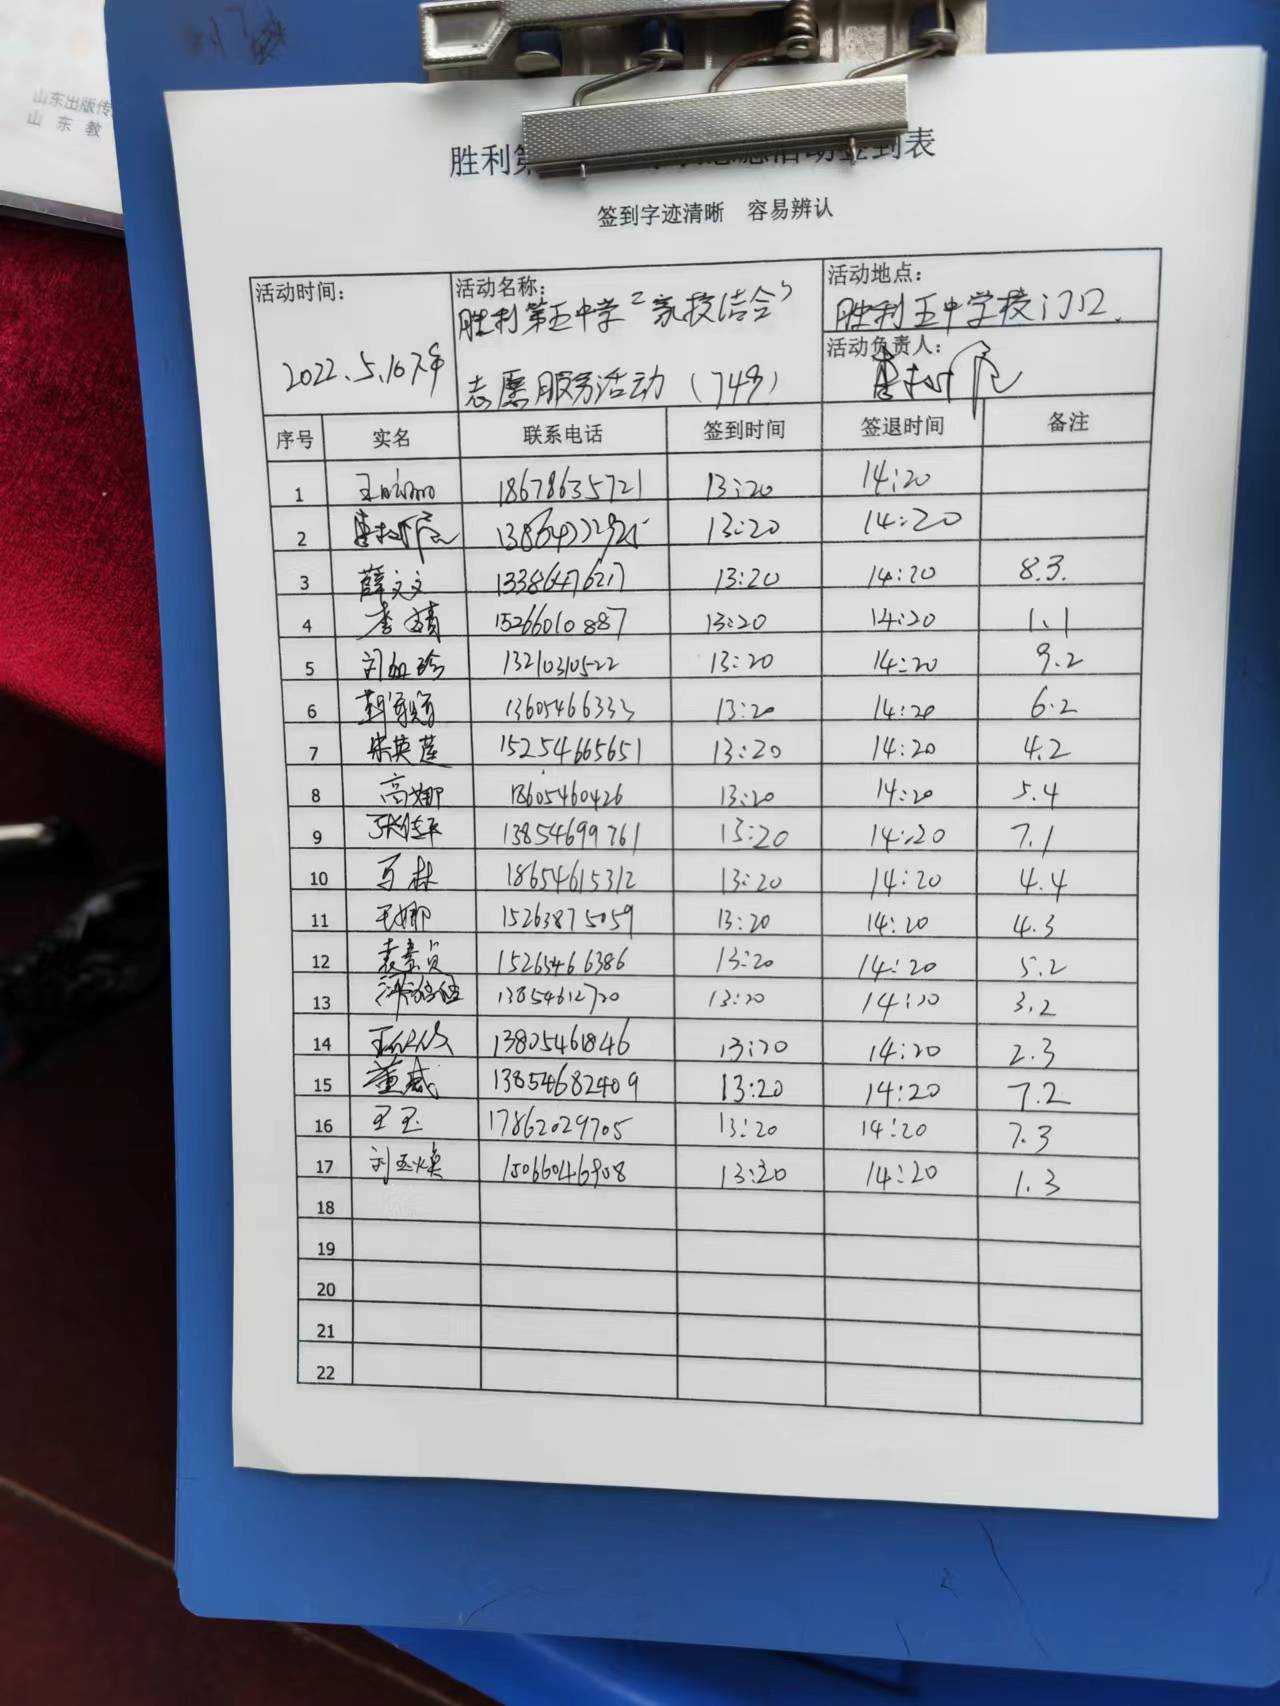 山东出版传
山 东 教
胜利第 活动签到表
签到字迹清晰 容易辨认
活动时间： 2022.5.16下午
活动名称： 胜利第五中学“家校结合”
志愿服务活动（74号）
活动地点： 胜利五中学校门口
活动负责人：
序号 实名 联系电话 签到时间 签退时间 备注
1 18678635721 13:20 14:20
2 13:20 14:20
3 薛文文 13386476217 13:20 14:20 8.3.
4 李婧 15266010887 13:20 14:20 1.1
5 刘如珍 13210310522 13:20 14:20 9.2
6 13605466333 13:20 14:20 6.2
7 宋英莲 15254665651 13:20 14:20 4.2
8 高娜 18605460426 13:20 14:20 5.4
9 13854699761 13:20 14:20 7.1
10 马林 18654615312 13:20 14:20 4.4
11 王娜 15263875059 13:20 14:20 4.3
12 15265466386 13:20 14:20 5.2
13 13854612720 13:20 14:20 3.2
14 13805461846 13:20 14:20 2.3
15 董威 13854682409 13:20 14:20 7.2
16 王玉 17862029705 13:20 14:20 7.3
17 刘玉焕 15066046908 13:20 14:20 1.3
18
19
20
21
22